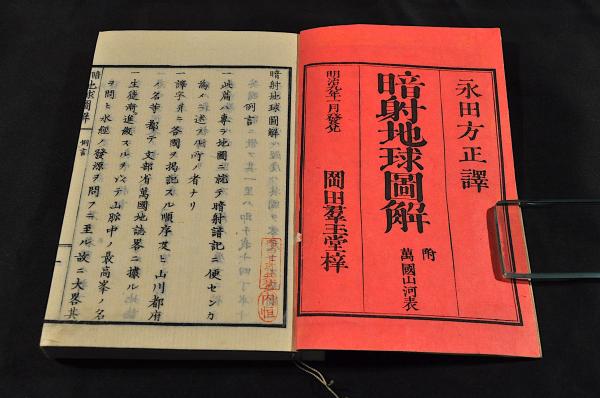 永田方正譯
暗射地球圖解
附
萬國山河表
明治九年 月發兌
岡田羣玉堂梓
暗射地球圖解
例言
一此篇ハ專ラ地圖ニ就テ暗射諳記ニ便センカ
爲メニ 所ノ者ナリ
一譯字并ニ各國ヲ掲記スル順序及ヒ山川都府
ノ名等 都テ文部省萬國地誌畧ニ據ル
一生徒漸進級スルニ テ山脉中ノ最高峯ノ名
ヲ問ヒ水經ノ發源ヲ問フニ至ル故ニ大畧其
暗射地球圖解
例言